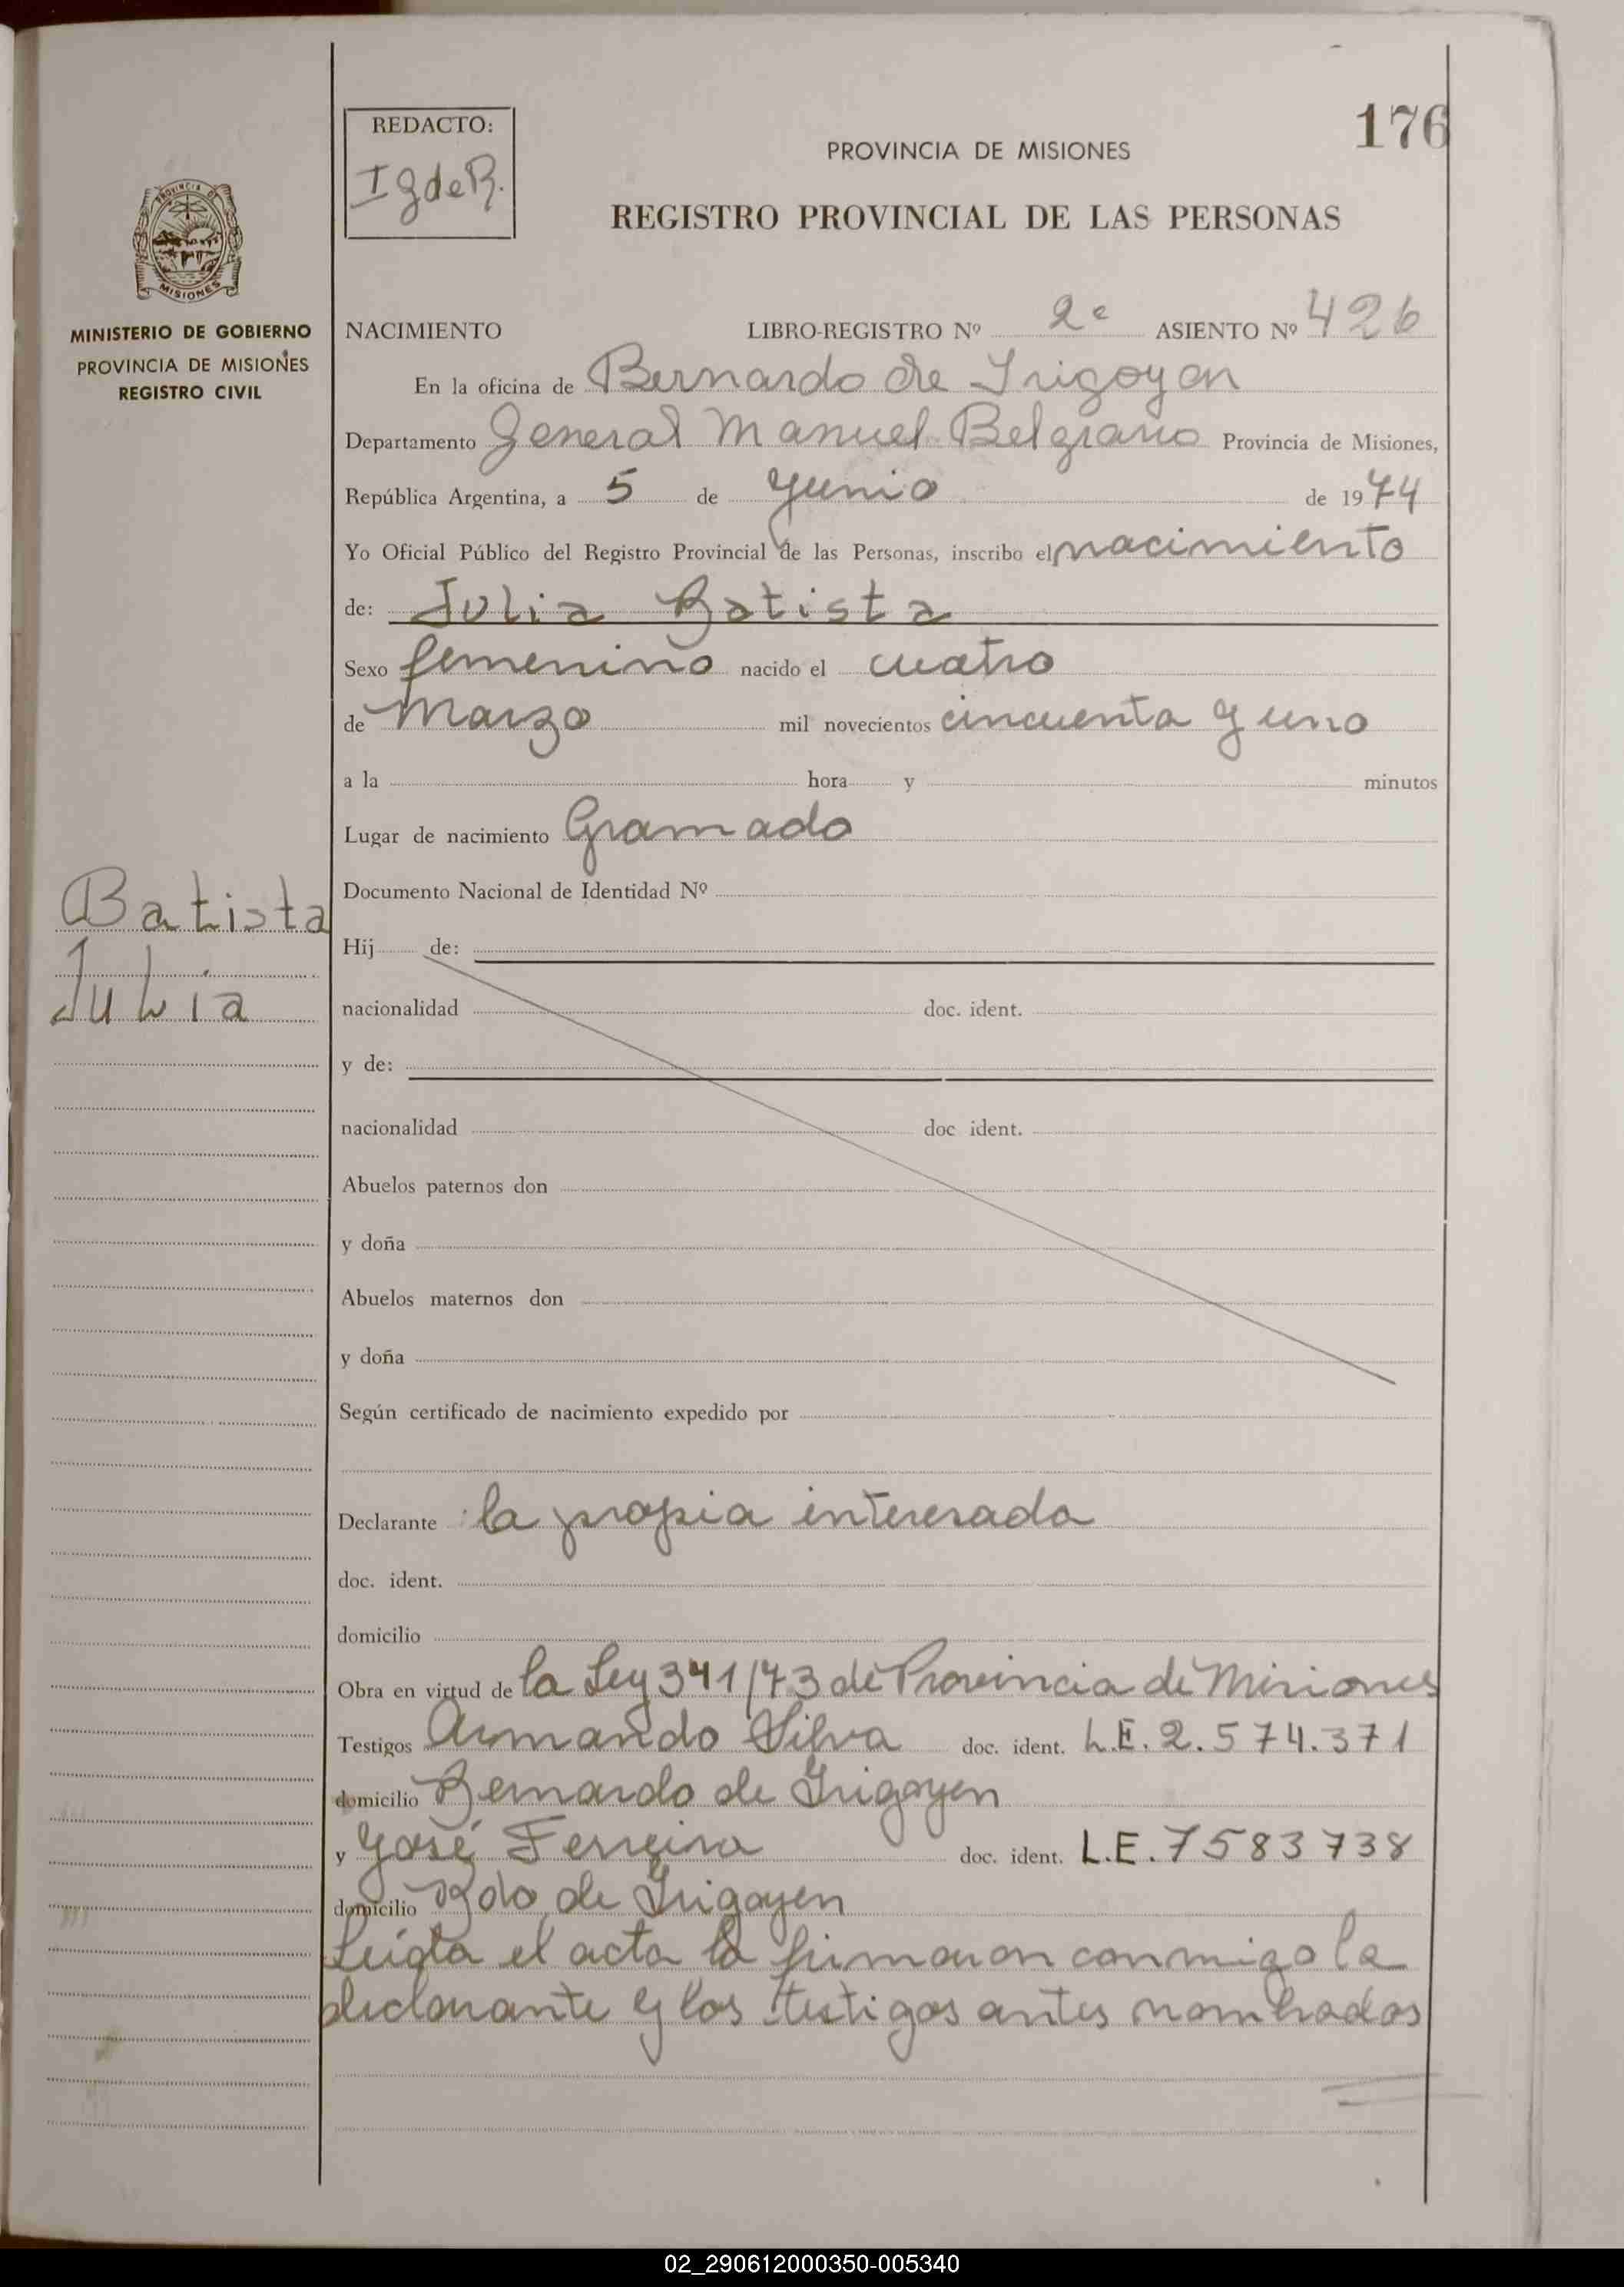 176
REDACTO:
IgdeR.
PROVINCIA DE MISIONES
REGISTRO PROVINCIAL DE LAS PERSONAS
PROVINCIA DE
MISIONES
MINISTERIO DE GOBIERNO
PROVINCIA DE MISIONES
REGISTRO CIVIL
NACIMIENTO LIBRO-REGISTRO Nº 2º ASIENTO Nº 426
En la oficina de Bernardo de Irigoyen
Departamento General Manuel Belgrano Provincia de Misiones,
República Argentina, a 5 de Junio de 1974
Yo Oficial Público del Registro Provincial de las Personas, inscribo el nacimiento
de: Julia Batista
Sexo femenino nacido el cuatro
de Marzo mil novecientos cincuenta y uno
a la hora y minutos
Lugar de nacimiento Gramado
Documento Nacional de Identidad Nº
Batista
Julia
Hij de:
nacionalidad doc. ident.
y de:
nacionalidad doc ident.
Abuelos paternos don
y doña
Abuelos maternos don
y doña
Según certificado de nacimiento expedido por
Declarante la propia interesada
doc. ident.
domicilio
Obra en virtud de la Ley 341/73 de Provincia de Misiones
Testigos Armando Silva doc. ident. L.E. 2.574.371
domicilio Bernardo de Irigoyen
y José Ferreira doc. ident. L.E. 7583738
domicilio Bdo. de Irigoyen
Leída el acta la firmaron conmigo la
declarante y los testigos antes nombrados
02_290612000350-005340